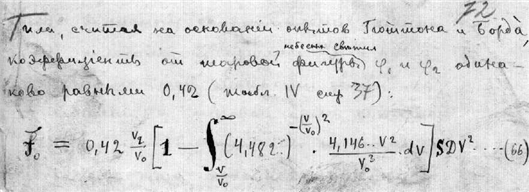 72
Тими, считая на основаніи опытовъ Гюттона и Борда,
небеснаго свѣтила
коэффиціентъ от шаровой фигуры φ₁ и φ₂ одина-
ково равными 0,42 (табл. IV стр 37):
F₀ = 0,42 V₁/V₀ [1 − ∫_{v/V₀}^{∞} (4,482..)^{−(v/V₀)²} · 4,146.. V²/V₀² . dV] SDV² .... (66)